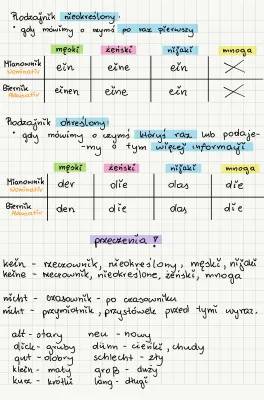 Rodzajnik nieokreślony.
* gdy mówimy o czymś po raz pierwszy
męski żeński nijaki mnoga
Mianownik ein eine ein X
Nominativ
Biernik einen eine ein X
Akkusativ
Rodzajnik określony
* gdy mówimy o czymś któryś raz lub podaje-
my o tym więcej informacji
męski żeński nijaki mnoga
Mianownik der die das die
Nominativ
Biernik den die das die
Akkusativ
przeczenia!
kein - rzeczownik, nieokreślony, męski, nijaki
keine - rzeczownik, nieokreślone, żeński, mnoga
nicht - czasownik - po czasowniku
nicht - przymiotnik, przysłówek przed tymi wyraz.
alt - stary neu - nowy
dick - gruby dünn - cienki, chudy
gut - dobry schlecht - zły
klein - mały groß - duży
kurz - krótki lang - długi